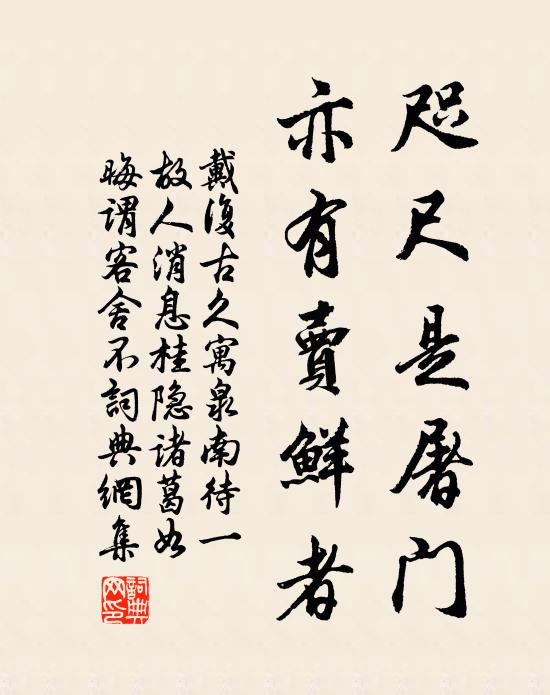 咫尺是屠门
亦有賣鮮者
戴復古久寓泉南待一
故人消息桂隐诸葛如
晦谓客舍不詞典網集
詞典網印